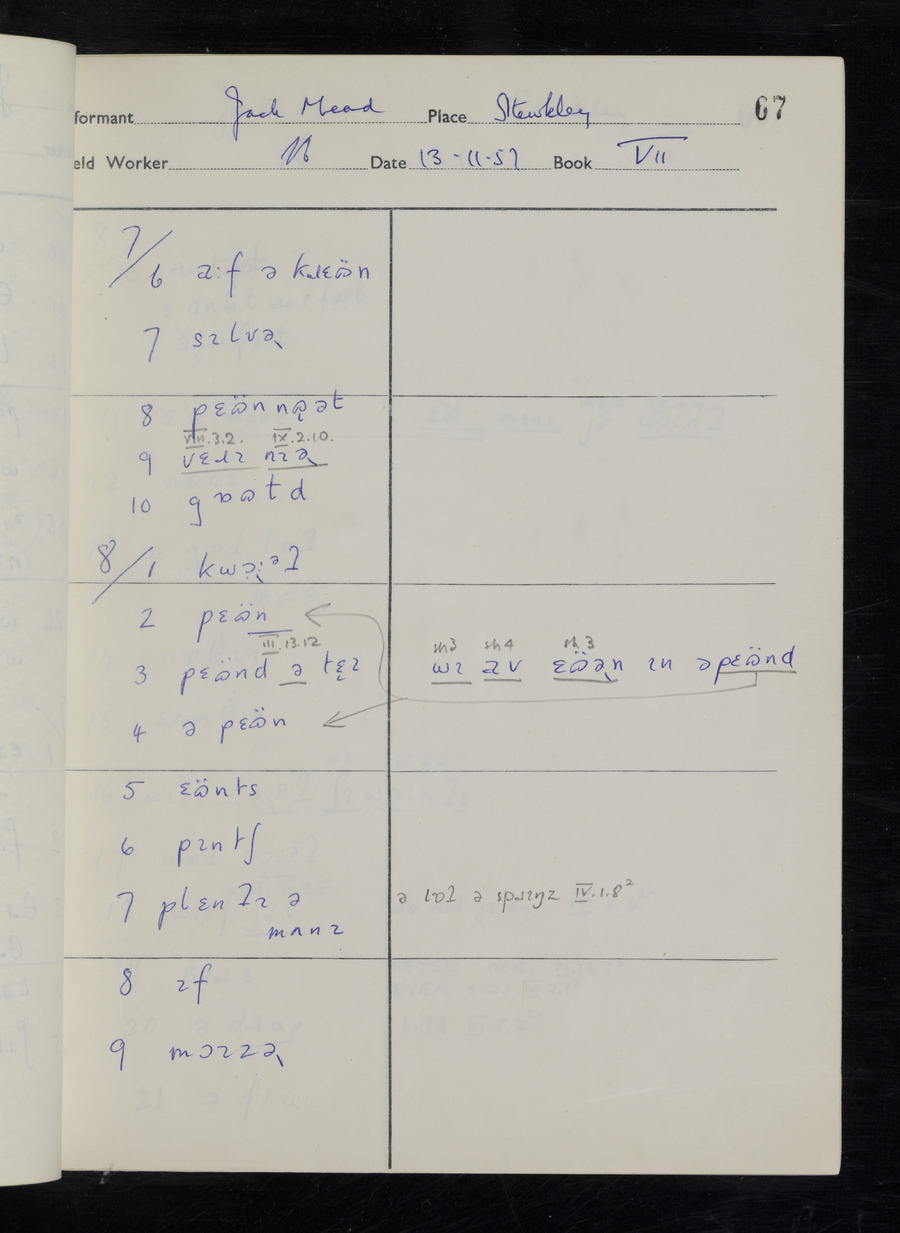 formant Jack Mead Place Stewkley 67
eld Worker Date 13-11-57 Book VII
7/6 aːf ə kɹɛön
7 sɪlvə˞
8 pɛönnɒ̨ət
VIII.3.2. IX.2.10.
9 vɛɹɪ nɪə˞
10 gɒʊtd
8/1 kwə˞ːəʔ
2 pɛön
III.13.12
3 pɛönd ə tɛ̨ɪ
sh3 sh4 sh3
wɪ av ɛöə˞n ɪn əpɛönd
4 ə pɛön
5 ɛönts
6 pɪntʃ
7 plɛnʔɪ ə
mʌnɪ
ə lɒʔ ə spɹɪŋz IV.1.8²
8 ɪf
9 mɔɪzə˞